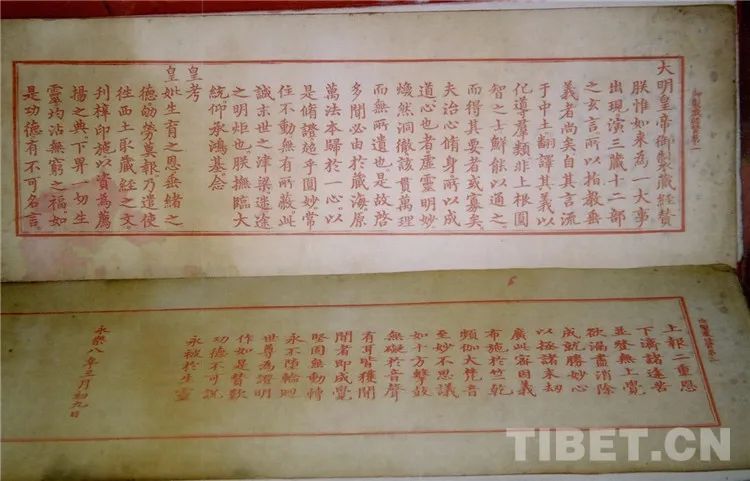 大明皇帝御製藏經贊
朕惟如來為一大事
出現演三藏十二部
之玄言所以指教垂
義者尚矣自其言流
于中土翻譯其義以
化導羣類非上根圓
智之士鮮能以通之
而得其要者或寡矣
夫治心脩身所以成
道心也者虛靈明妙
煥然洞徹該貫萬理
而無所遺也是故啓
多聞必由於藏海原
萬法本歸於一心以
是脩證超乎圓妙常
住不動無有所蔽此
誠末世之津梁迷途
之明炬也朕撫臨大
統仰承鴻基念
皇考
皇妣生育之恩垂緒之
德劬勞莫報乃遣使
往西土取藏經之文
刊梓印施以資為薦
揚之典下畀一切生
靈均沾無窮之福如
是功德有不可名言
上報二重恩
下濟諸途苦
並發無上覺
欲漏盡消除
成就勝妙心
以極諸末劫
廣此密因義
布施於竺乾
頻伽大梵音
至妙不思議
如十方擊鼓
無礙於音聲
有耳皆獲聞
聞者即成覺
堅固無動轉
永不墮輪迴
世尊為證明
作如是贊歎
功德不可說
永被於生靈
永樂八年三月初九日
TIBET.CN